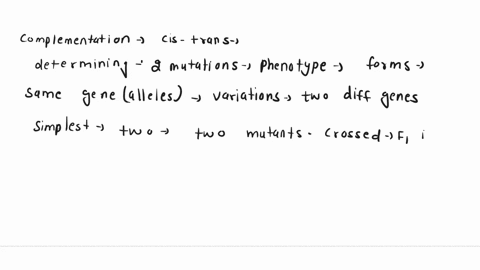 complementation → cis - trans →
determining - 2 mutations → phenotype → forms →
same gene (alleles) → variations → two diff genes
simplest → two → two mutants - crossed → F1 i